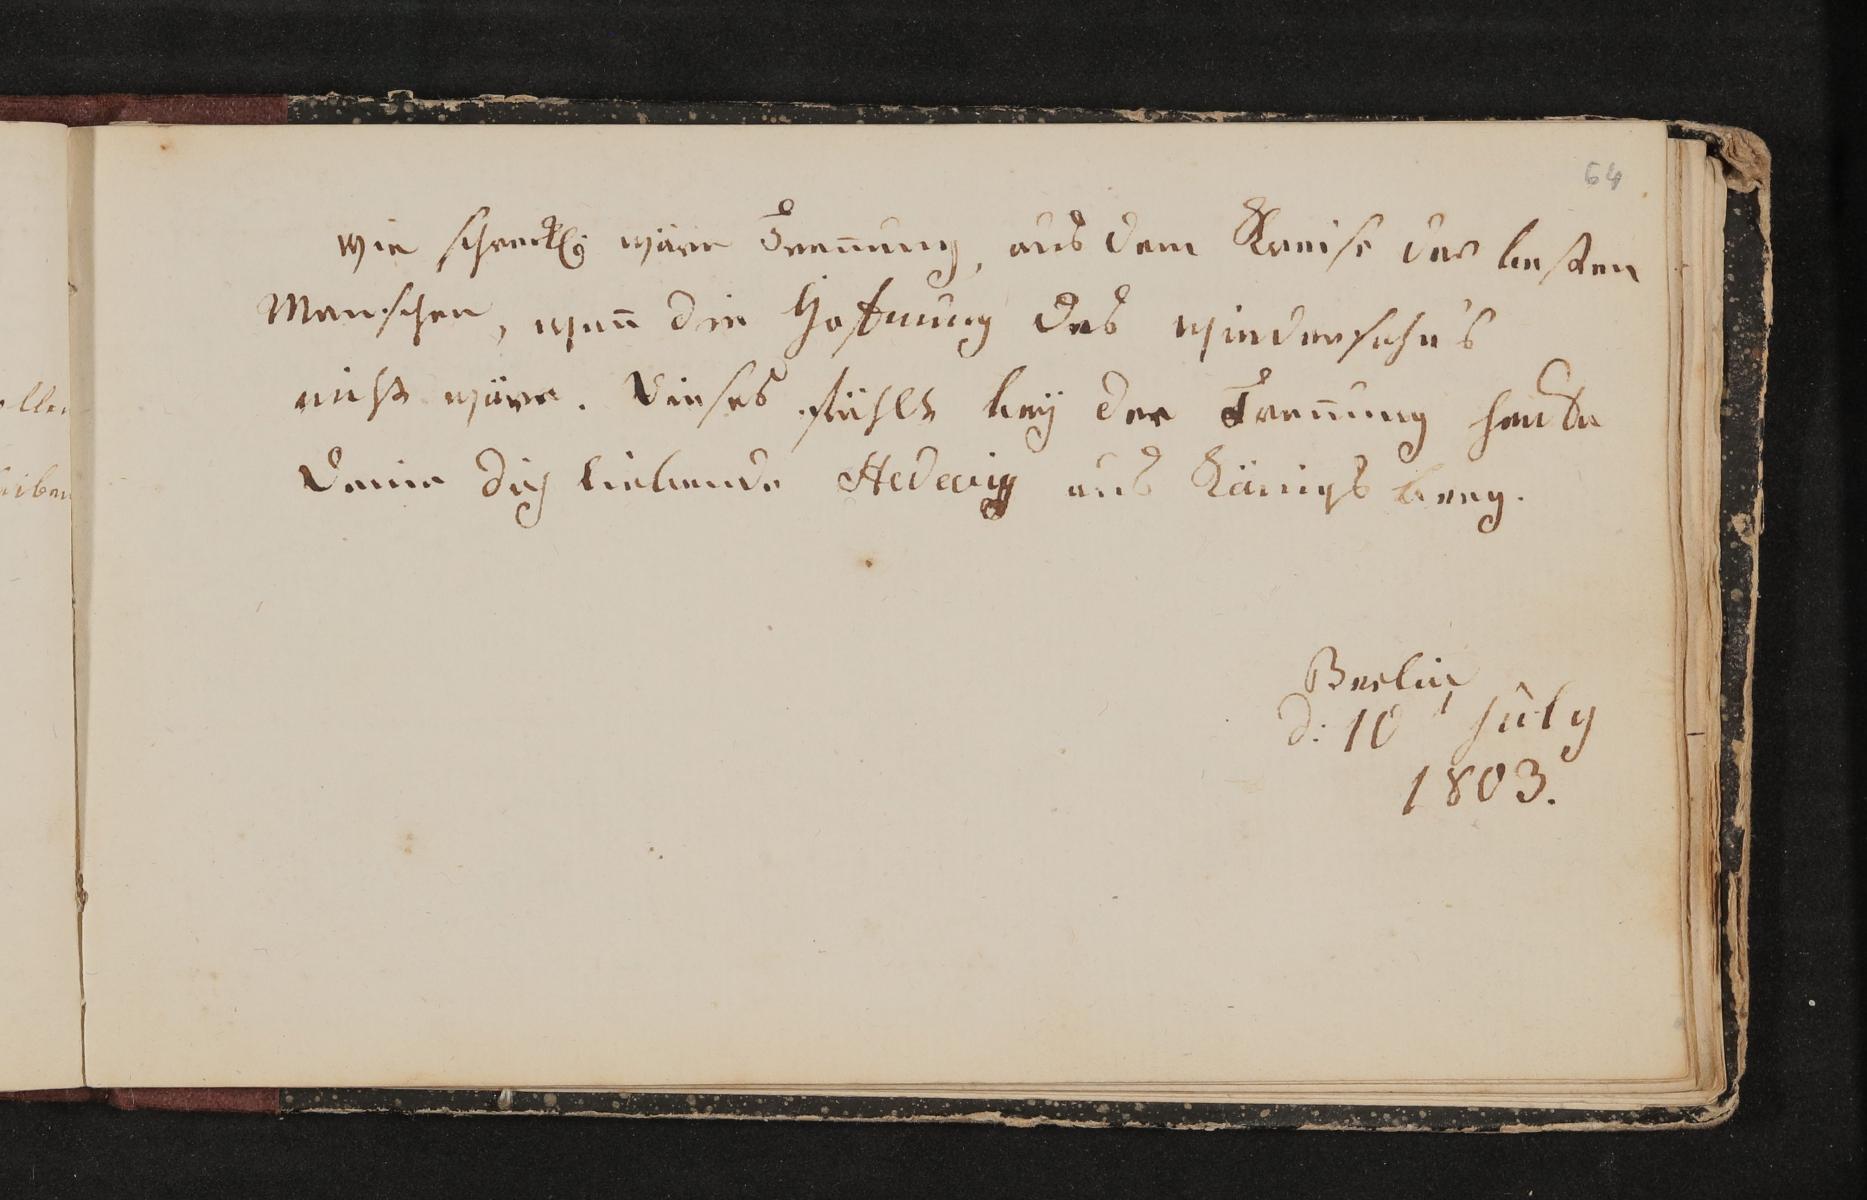 64
Wie schreckl: wäre Tren̄ung, aus dem Kreise der besten
Menschen, wen̄ die Hofnung des wiedersehn's
nicht wäre. Dieses fühlt bey der Tren̄ung heute
Deine dich liebende Hedewig aus Königs berg.
Berlin
d: 10 July
1803.